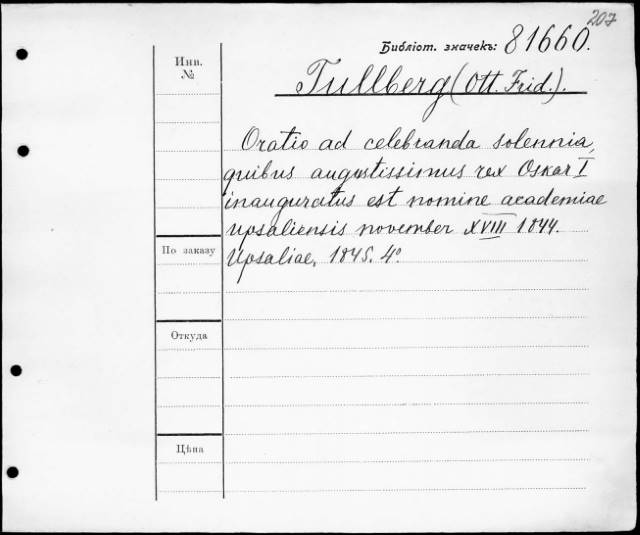 207
Библіот. значекъ: 81660.
Инв.
№
Tullberg (Ott. Frid.).
Oratio ad celebranda solennia,
quibus augustissimus rex Oskar I
inauguratus est nomine academiae
upsaliensis november XVIII 1844.
Upsaliae, 1845. 4°.
По заказу
Откуда
Цѣна